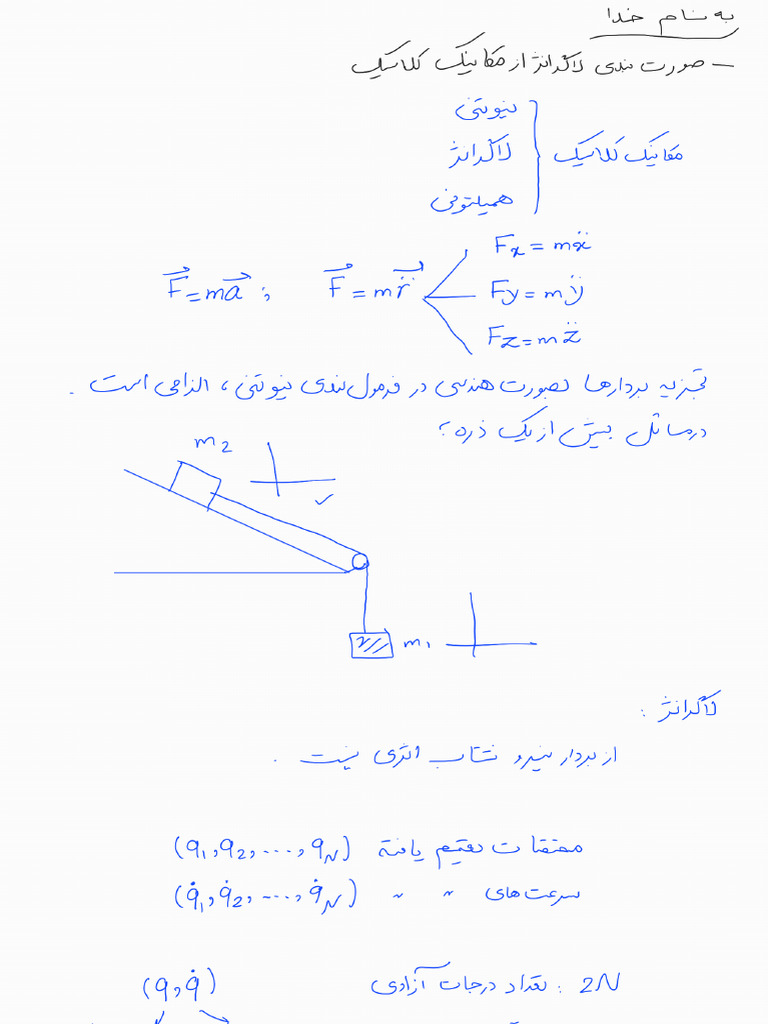 به نام خدا
– صورت بندی لاگرانژ از مکانیک کلاسیک
نیوتنی
مکانیک کلاسیک { لاگرانژ
همیلتونی
Fx = mẍ
F⃗ = ma⃗ ; F⃗ = mr̈⃗ Fy = mÿ
Fz = mz̈
تجزیه بردارها بصورت هندسی در فرمول بندی نیوتنی، الزامی است .
در مسائل بیش از یک ذره ؟
m2
m1
لاگرانژ :
از بردار نیرو و شتاب اثری نیست .
مختصات تعمیم یافته (q1, q2, ..., qN)
سرعت های " " (q̇1, q̇2, ..., q̇N)
2N : تعداد درجات آزادی (q, q̇)